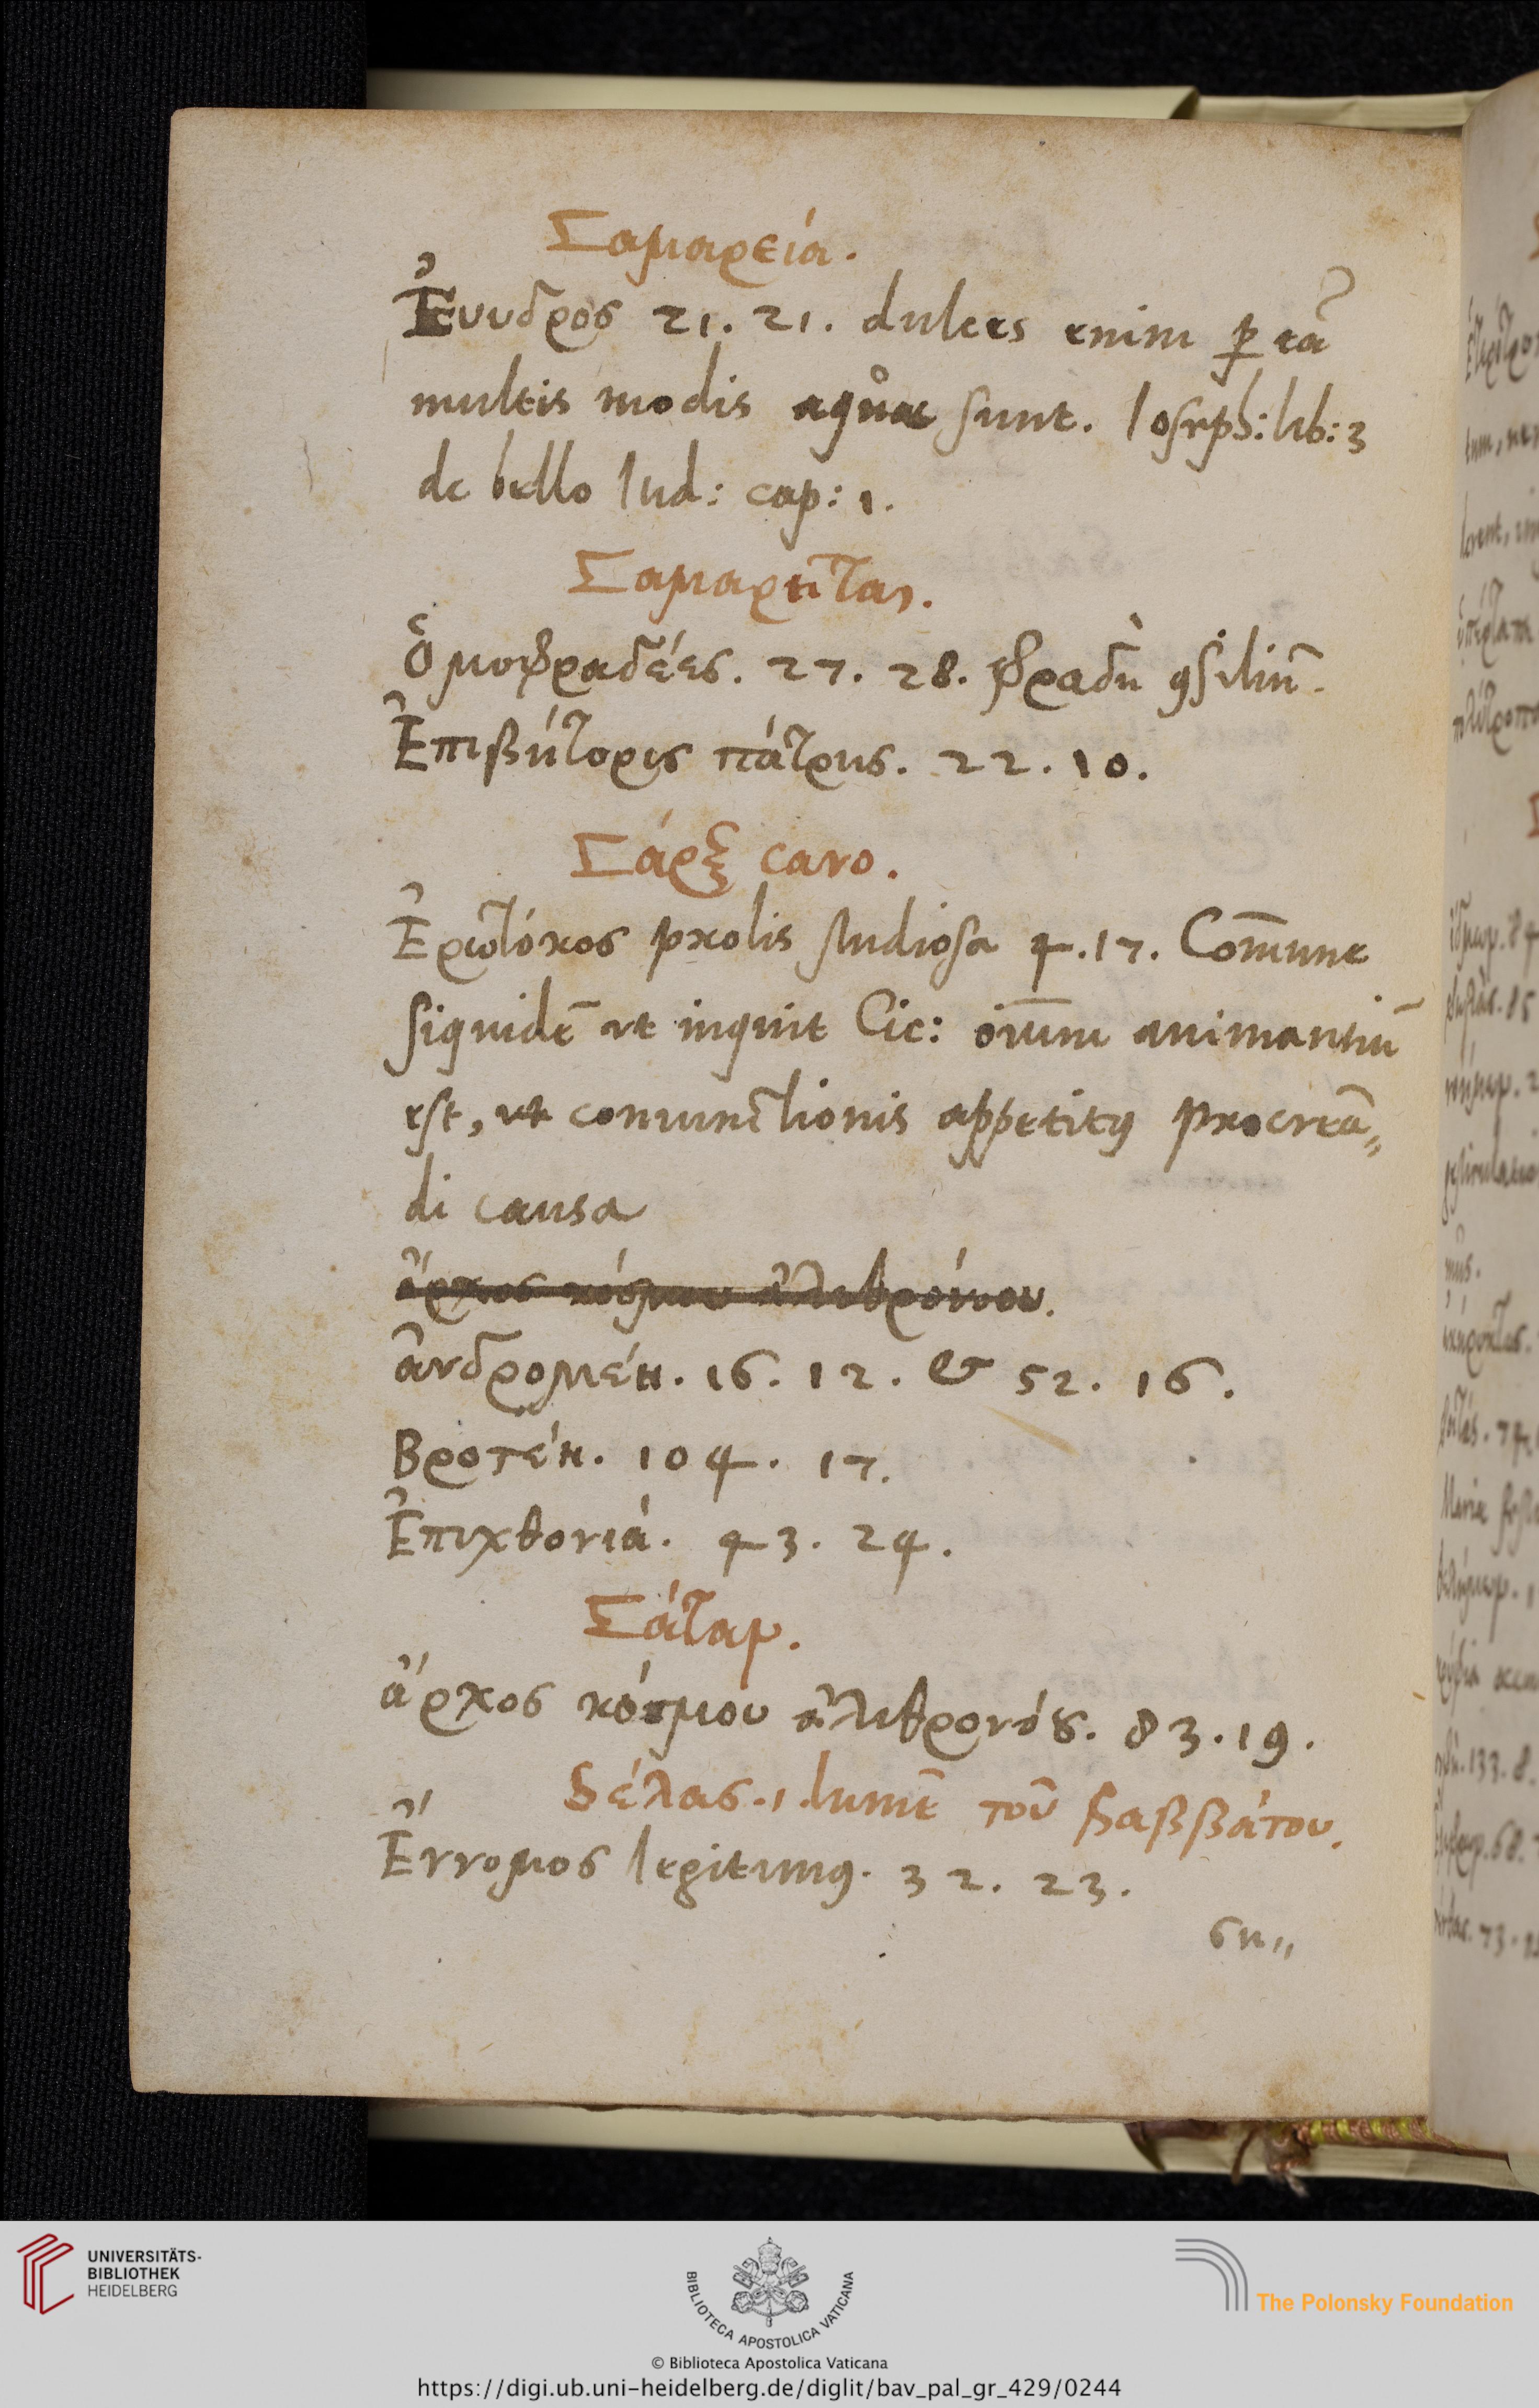 Σαμαρεία.
Ἔνυδρος 21. 21. dulces enim ꝑ eā
multis modis aquae sunt. Ioseph: lib: 3
de bello Iud: cap: 1.
Σαμαρεῖται.
Ὁμοφραδέες. 27. 28. φραδὴ ꝯsiliū.
Ἐπιβήτορες πάτρης. 22. 10.
Σάρξ caro.
Ἐρωτόκος prolis studiosa 4. 17. Com̄une
siquidē ut inquit Cic: oīum animantiū
est, ut coniunctionis appetitꝰ procreā„
di causa
ἄρχος κόσμου
ἀνδρομέη. 16. 12. & 52. 16.
Βροτέη. 104. 17.
Ἐπιχθονιά. 43. 24.
Σάταν.
ἄρχος κόσμου ἀλιθρονόȣ. 83. 19.
Σέλας .i. lumē τοῦ Σαββάτου.
Ἔννομος legitimꝰ. 32. 23.
ση„
UNIVERSITÄTS-
BIBLIOTHEK
HEIDELBERG
BIBLIOTECA APOSTOLICA VATICANA
The Polonsky Foundation
© Biblioteca Apostolica Vaticana
https://digi.ub.uni-heidelberg.de/diglit/bav_pal_gr_429/0244